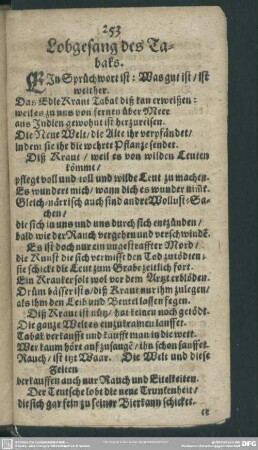 253
Lobgesang des Ta-
baks.
EIn Sprüchwort ist: Was gut ist / ist
weit her.
Das Edle Kraut Tabak diß kan erweißen:
weil es zu uns von fernen über Meer
aus Indien gewohnt ist herzureisen.
Die Neue Welt / die Alte ihr verpfändet /
indem sie ihr die wehrte Pflanze sendet.
Diß Kraut / weil es von wilden Leuten
kömmt /
pflegt voll und toll und wilde Leut zu machen.
Es wundert mich / wann dich es wunder nimt.
Gleich-närrisch auch sind andre Wollust-Sa-
chen /
die sich in uns und uns durch sich entzünden /
bald wie der Rauch vergehen und verschwinden.
Es ist doch nur ein ungestraffter Mord /
die Kunst die sich vermisst den Tod zutödten:
sie schickt die Leut zum Grabe zeitlich fort.
Ein Krauter solt wol vor dem Artzt erblöden.
Drüm bässer ists / diß Kraut nur ihm zulegen /
als ihm den Leib und Beutel lassen fegen.
Diß Kraut ist nütz / hat keinen noch getödt.
Die ganze Welt es einzukramen lauffet.
Tabak verkaufft und kaufft man in die wett.
Wer kaum hört auf zusaugē / ihn schon sauffet.
Rauch / ist itzt Waar. Die Welt und diese
Zeiten
verkauffen auch nur Rauch und Eitelkeiten.
Der Teutsche lobt die neue Trunkenheit /
die sich gar fein zu seiner Bierkann schicket.